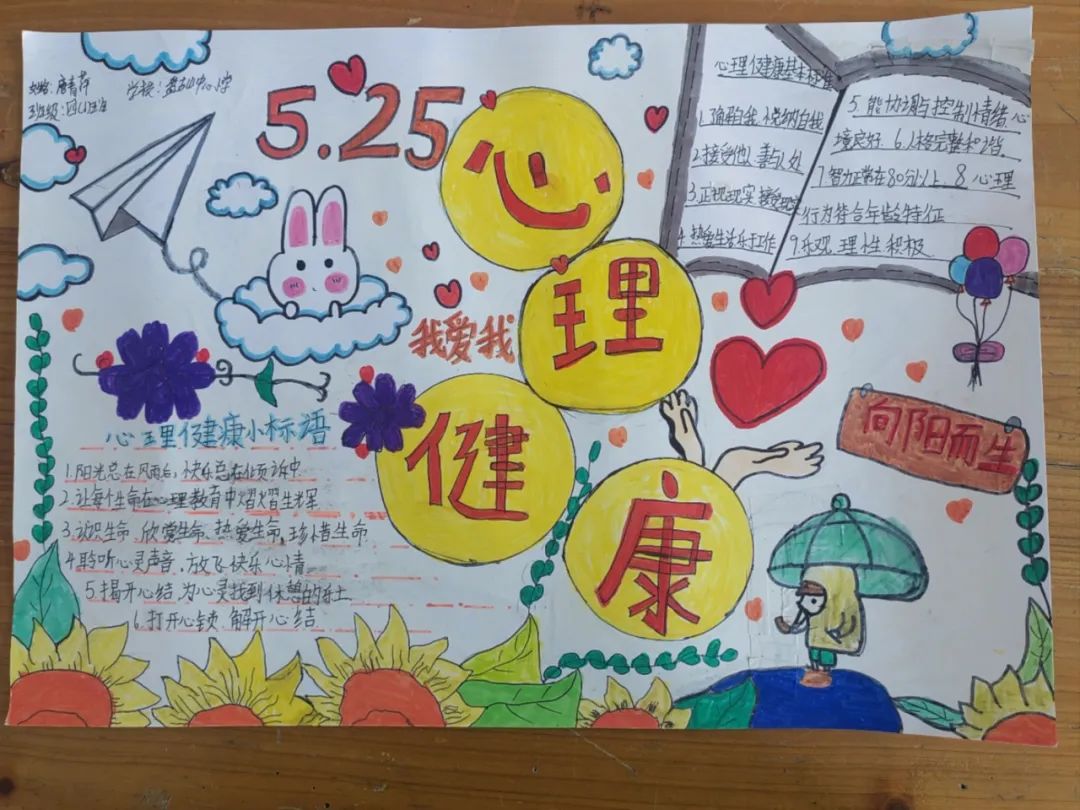 姓名:唐青萍
学校:盘石山中心小学
班级:四(1)班
5.25
心
理
健
康
我爱我
心理健康基本标准
1.确自我 悦纳自我
2.接受他人 善与人处
3.正视现实 接受现实
4.热爱生活 乐于工作
5.能协调与控制情绪 心
境良好 6.人格完整和谐.
7.智力正常在80分以上. 8 心理
行为符合年龄特征
9.乐观 理性 积极.
向阳而生
心理健康小标语
1.阳光总在风雨后,快乐总在倾诉中
2.让每个生命在心理教育中熠熠生辉
3.认识生命、欣赏生命、热爱生命、珍惜生命
4.聆听心灵声音、放飞快乐心情
5.揭开心结,为心灵找到休憩的乐土
6.打开心锁、解开心结